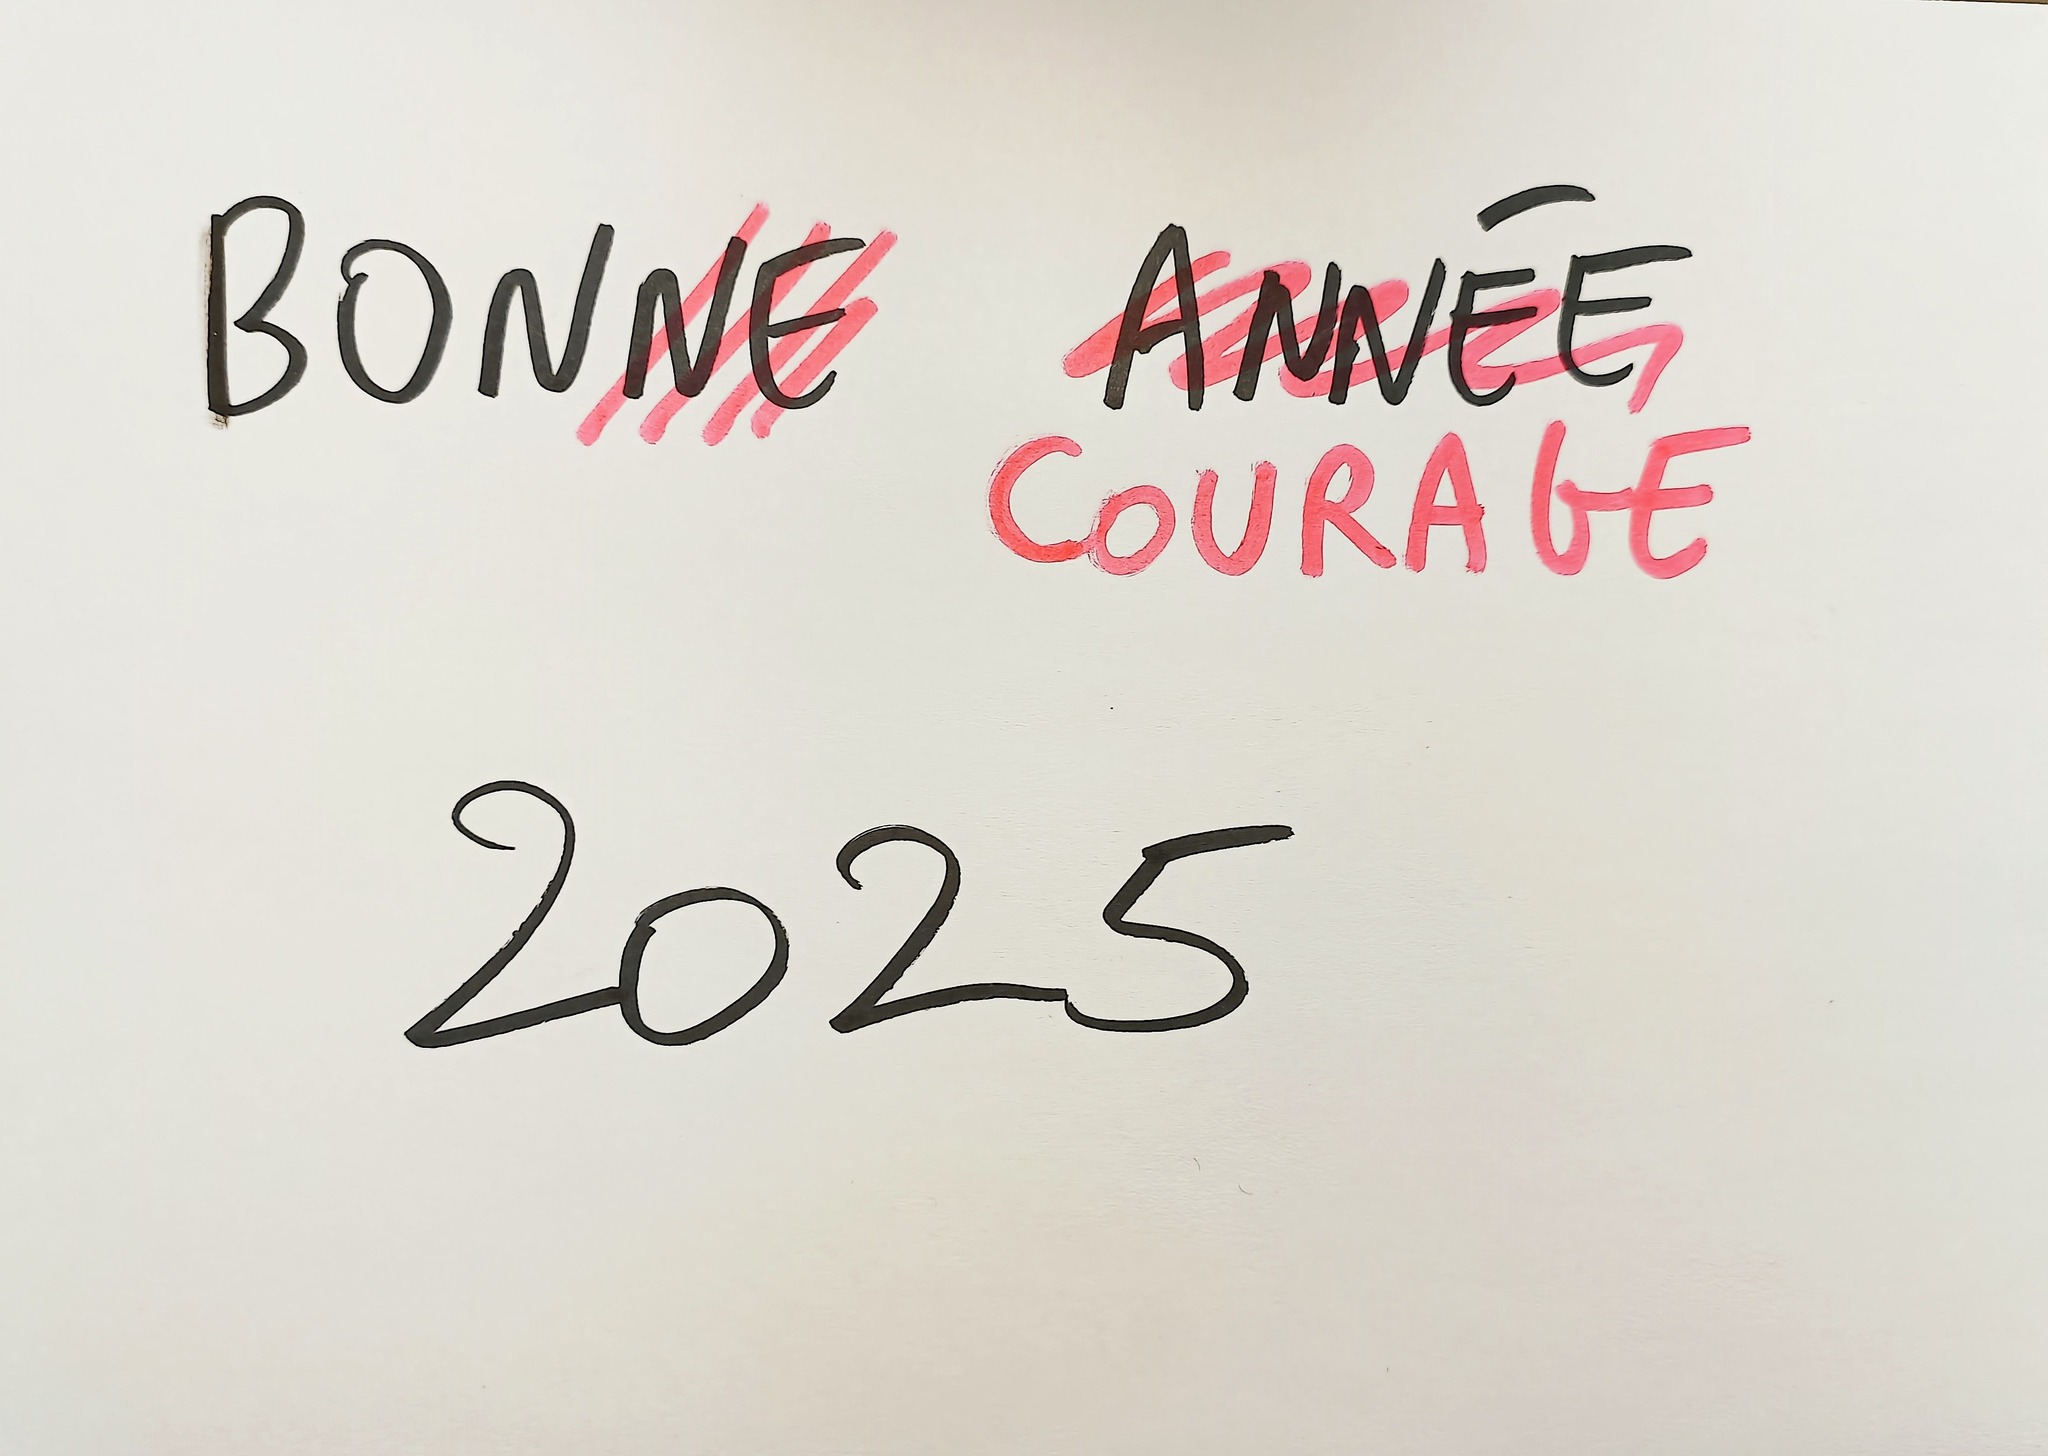 BONNE ANNÉE
COURAGE
2025